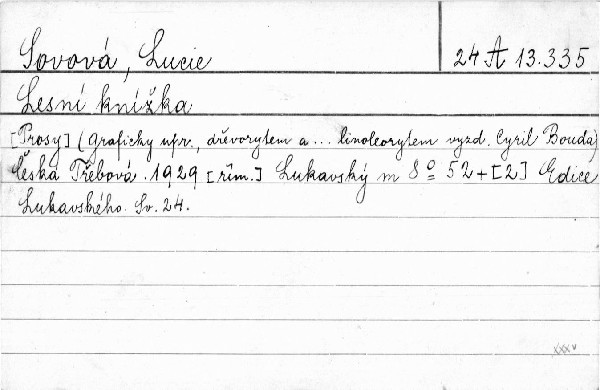 Sovová, Lucie
24 A 13.335
Lesní knížka
[Prosy] (Graficky upr., dřevorytem a ... linoleorytem vyzd. Cyril Bouda)
Česká Třebová. 1929 [řím.] Lukavský m 8° 52+[2] Edice
Lukavského. Sv. 24.
xxxv